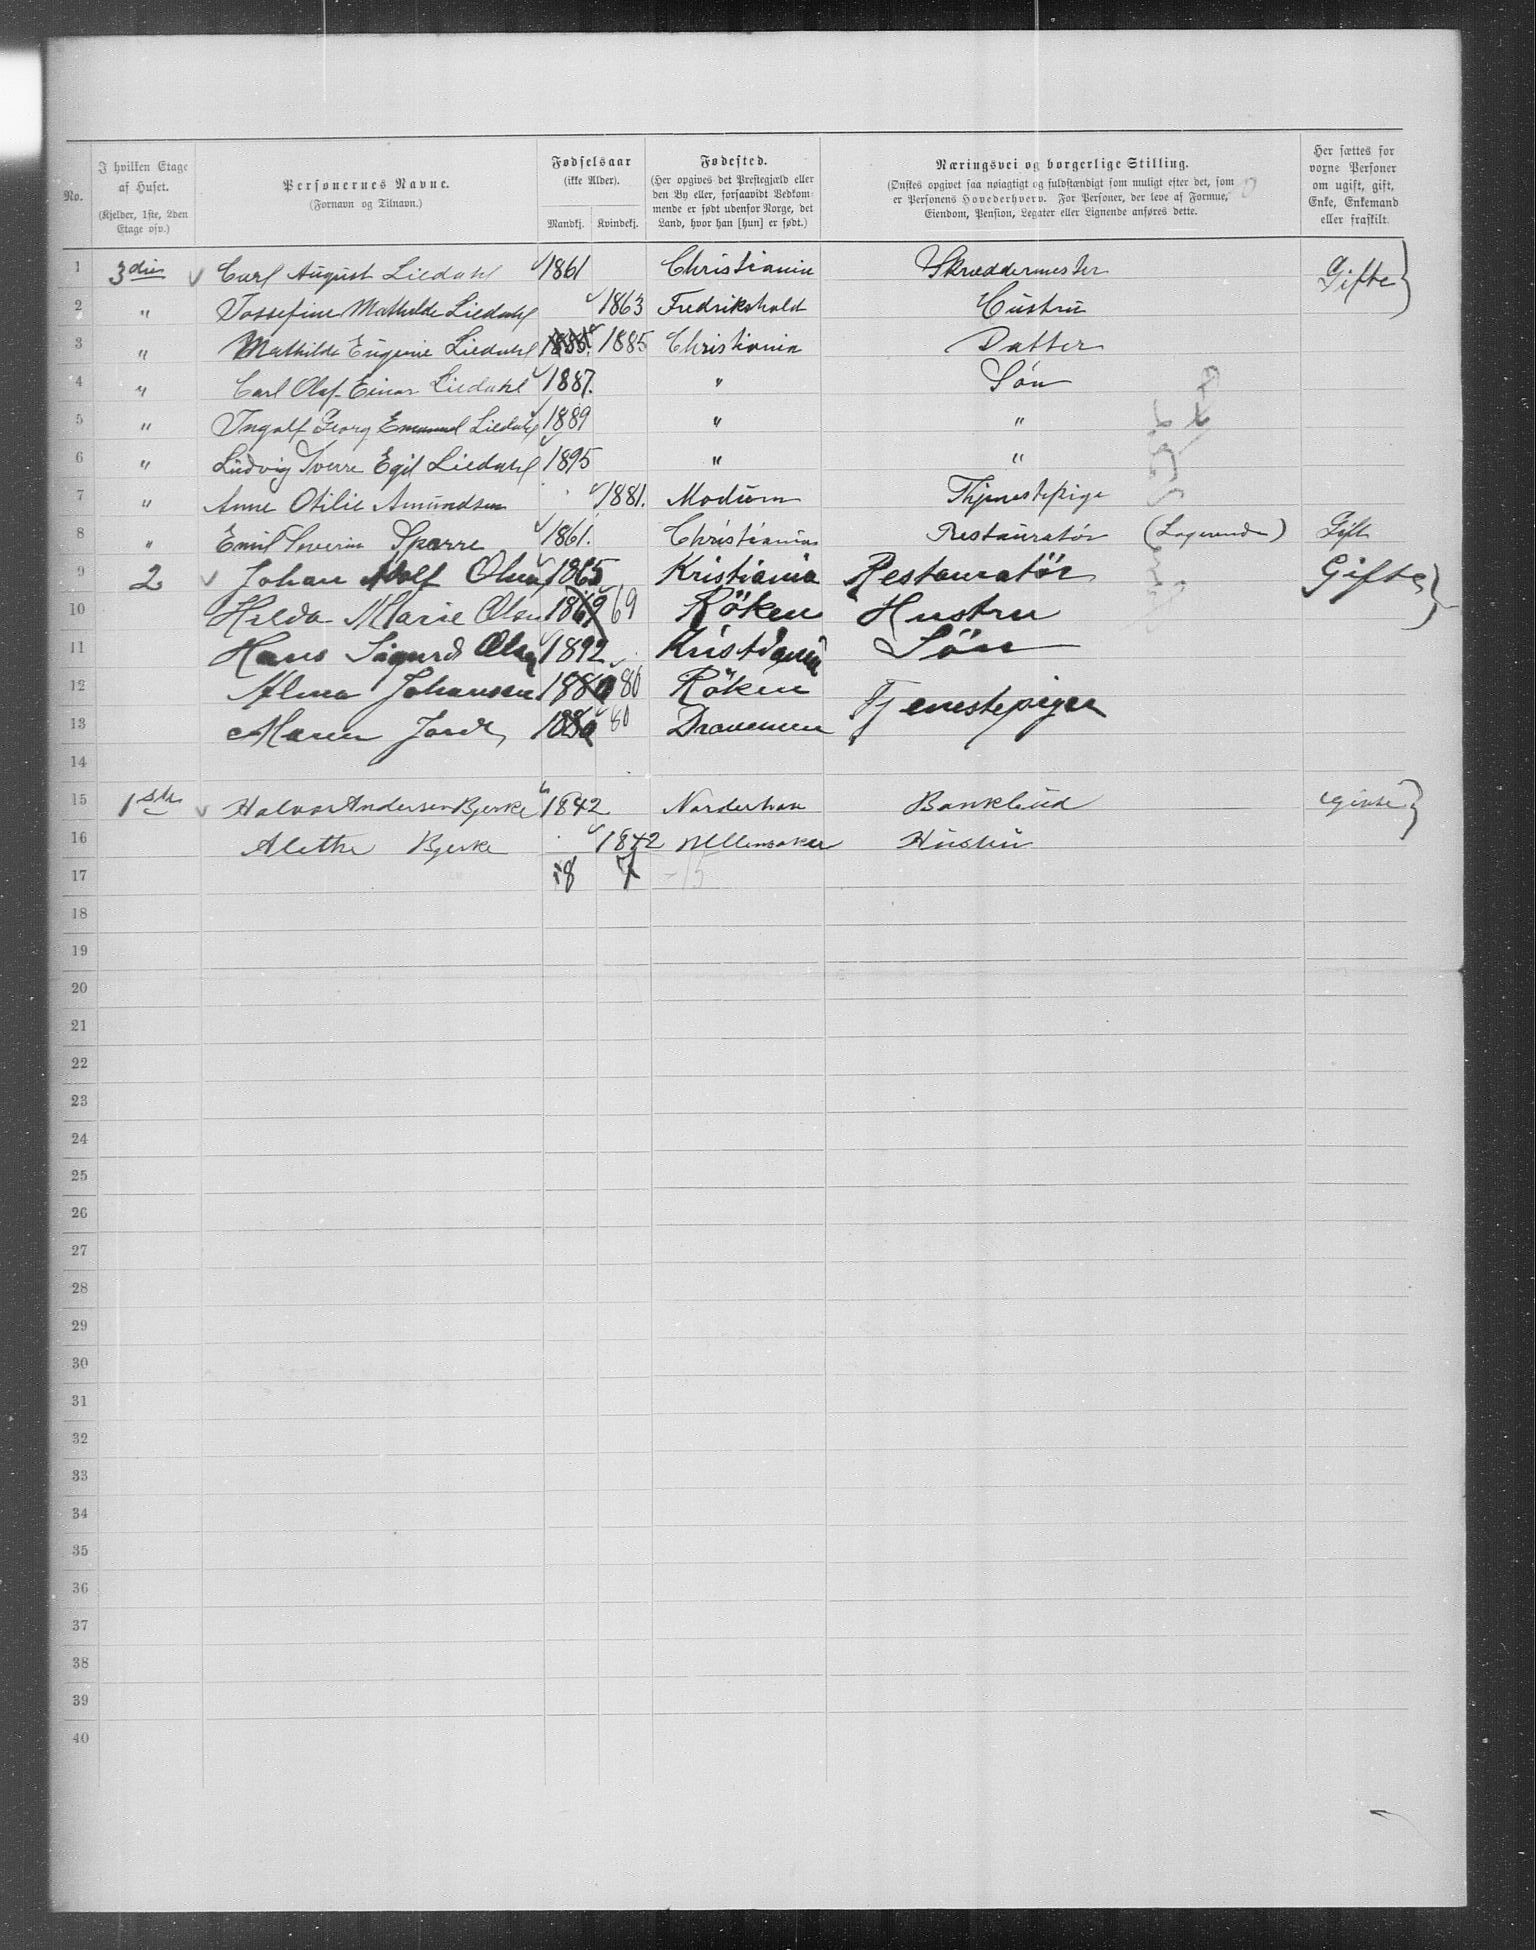 No. | I hvilken Etage af Huset. (Kjelder, 1ste, 2den Etage osv.) | Personernes Navne. (Fornavn og Tilnavn.) | Fødselsaar (ikke Alder). Mandkj. Kvindekj. | Fødested. (Her opgives det Prestegjæld eller den By eller, forsaavidt Vedkommende er født udenfor Norge, det Land, hvor han [hun] er født.) | Næringsvei og borgerlige Stilling. (Ønskes opgivet saa nøiagtigt og fuldstændigt som muligt efter det, som er Personens Hovederhverv. For Personer, der leve af Formue, Eiendom, Pension, Legater eller Lignende anføres dette. | Her sættes for voxne Personer om ugift, gift, Enke, Enkemand eller fraskilt.
1 3die Carl August Liedahl 1861 Christiania Skræddermester Gifte }
2 " Jossefine Mathilde Liedahl 1863 Fredrikshald Hustru
3 " Mathilde Eugenie Liedahl 1885 1885 Christiania Datter
4 " Carl Olaf Einar Liedahl 1887. " Søn
5 " Ingolf Georg Emanuel Liedahl 1889 " "
6 " Ludvig Sverre Egil Liedahl 1895 " "
7 " Anne Otilie Amundsen 1881. Modum Thjenestepige
8 " Emil Severin Sparre 1861. Christiania Restauratør (Logerende) Gift
9 2 Johan Adolf Olsen 1865 Kristiania Restauratör Gifte }
10 Hilda Marie Olsen 1869 69 Röken Hustru
11 Hans Sigurd Olsen 1892 Kristiania Sön
12 Alma Johansen 1880 80 Röken Tjenestepiger
13 Maren 1880 80 Drammen
14
15 1ste Halvor Andersen Bjerke 1842 Norderhov Bankbud Givte }
16 Alethe Bjerke 1842 Ullensaker Hustru
17 8 7 -15
18
19
20
21
22
23
24
25
26
27
28
29
30
31
32
33
34
35
36
37
38
39
40